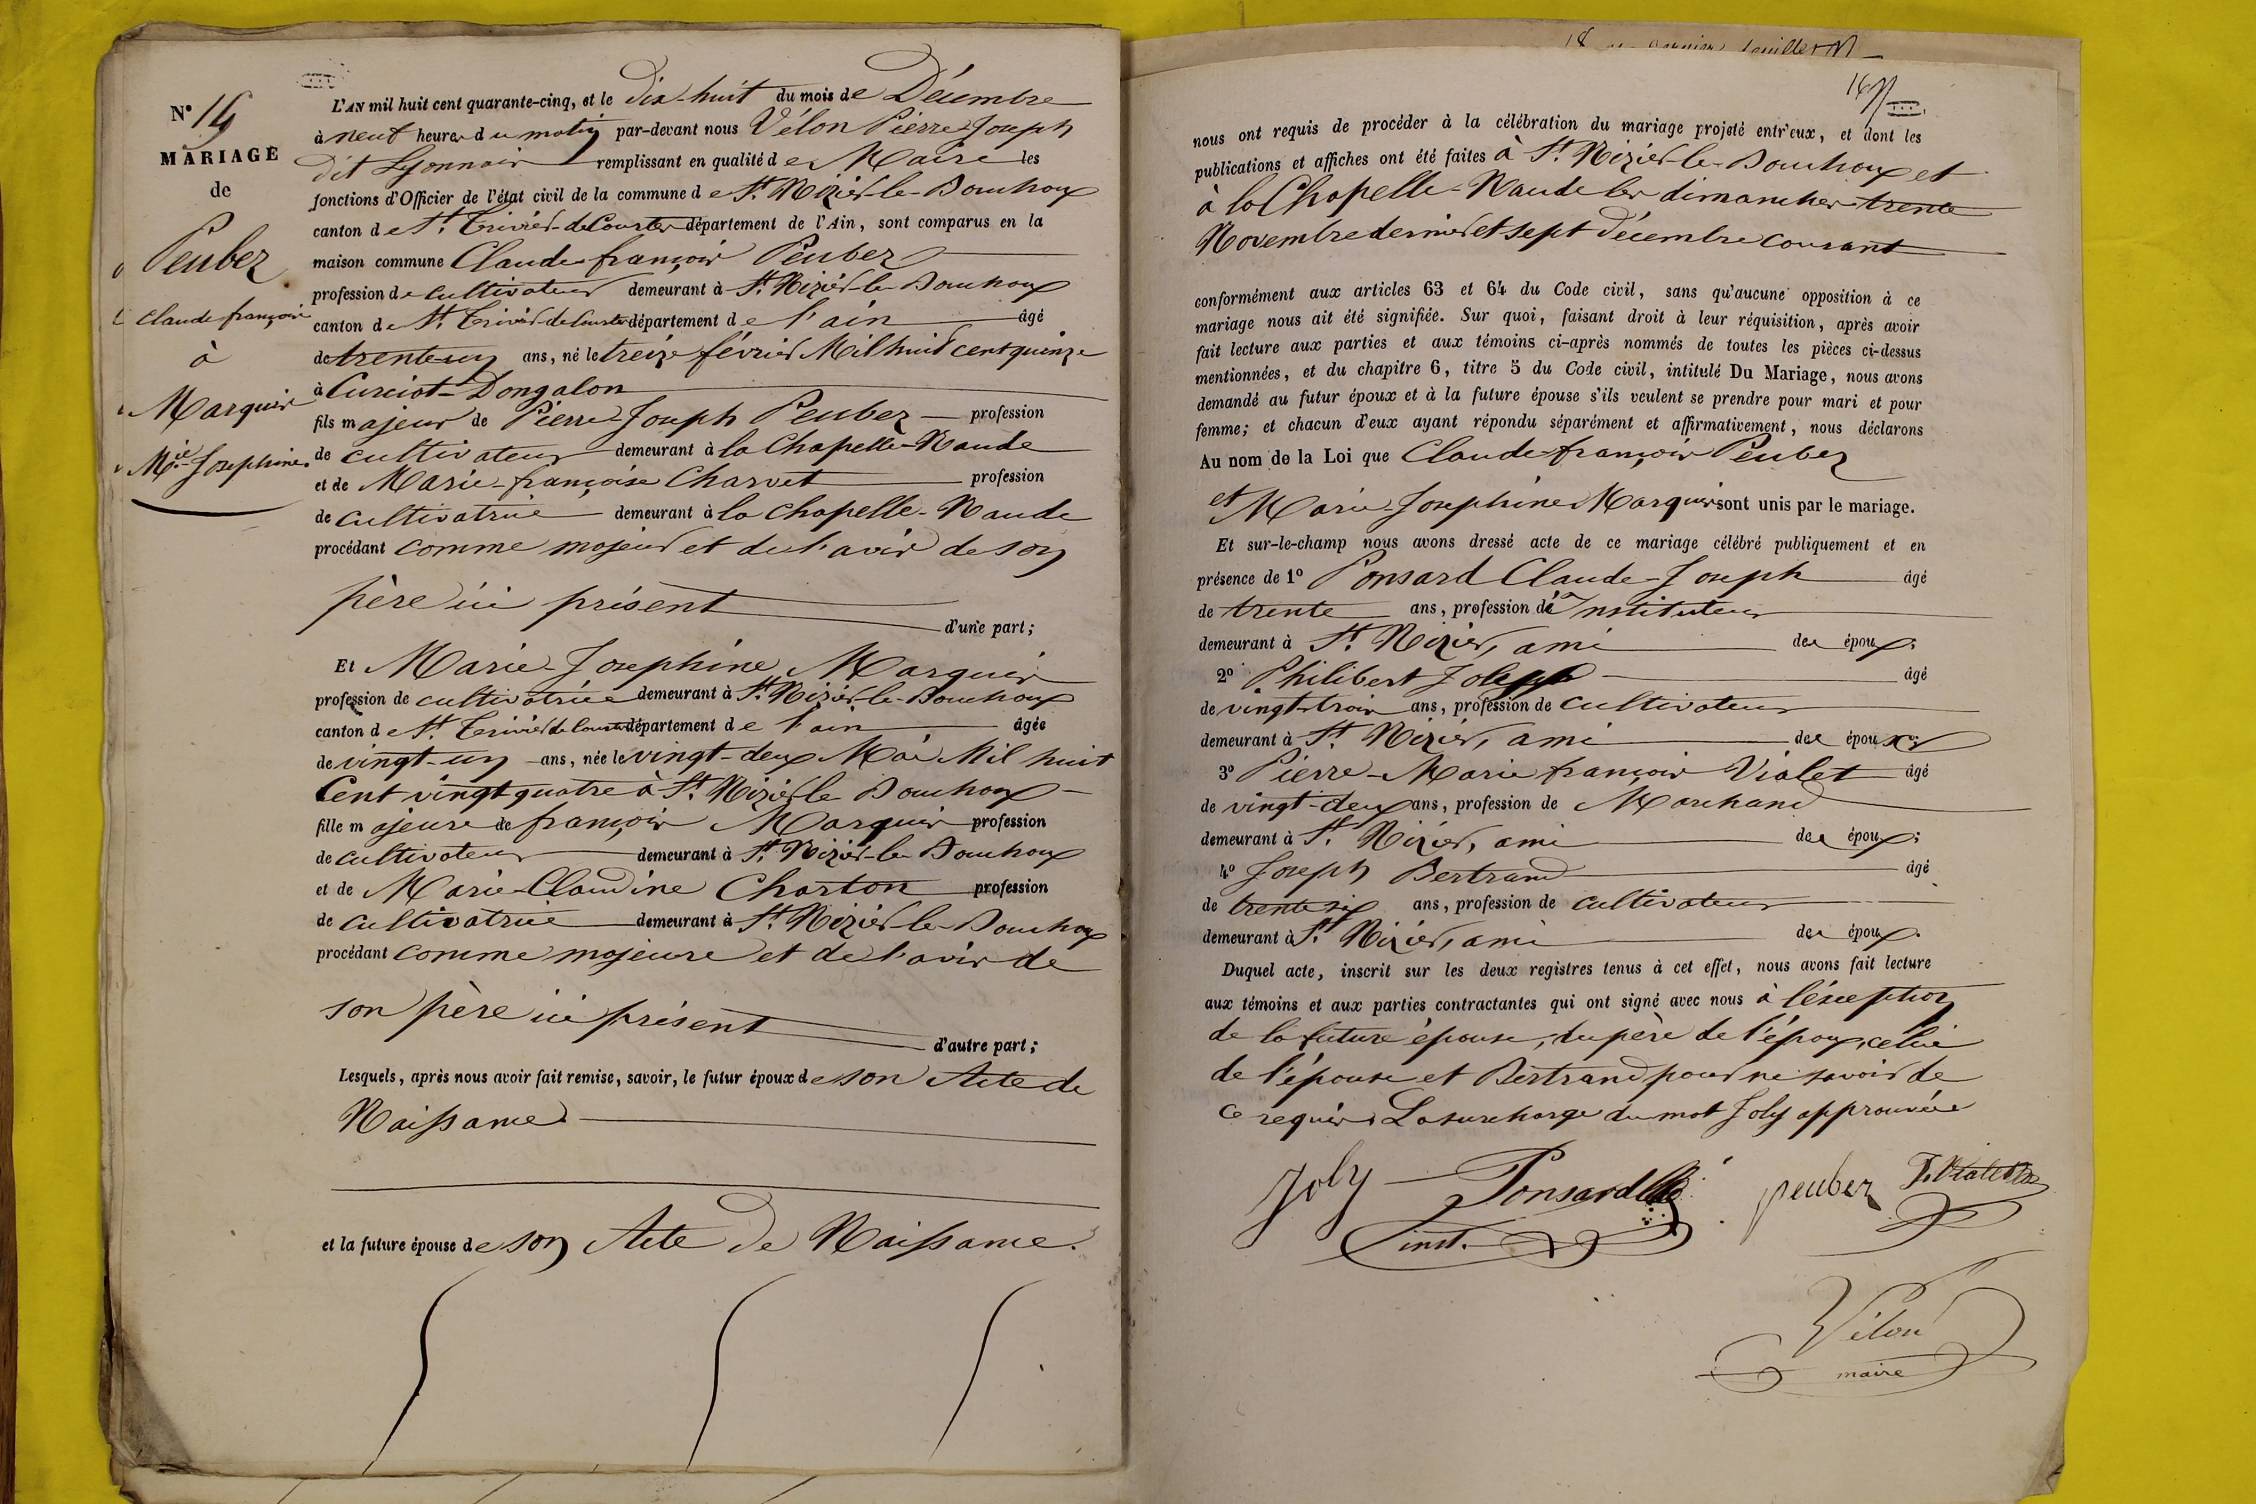 N° 14
MARIAGE
de
Peubez
Claude françois
à
Marquis
Mie Josephine.
L'AN mil huit cent quarante-cinq, et le dix-huit du mois de Décembre
à neuf heures du matin par-devant nous Vélon Pierre-Joseph
dit Lyonnais remplissant en qualité de Maire les
fonctions d'Officier de l'état civil de la commune de St. Nizier-le-Bouchoux
canton de St. Trivier-de Courtes département de l'Ain, sont comparus en la
maison commune Claude-françois Peubez
profession de cultivateur demeurant à St. Nizier-le-Bouchoux
canton de St. Trivier-de Courtes département de l'ain âgé
de trente-un ans, né le treize février Mil huit cent quinze
à Curciat-Dongalon
fils majeur de Pierre-Joseph Peubez profession
de cultivateur demeurant à la Chapelle-Naude
et de Marie-françoise Charvet profession
de cultivatrice demeurant à la Chapelle-Naude
procédant comme majeur et de l'avis de son
père ici présent
d'une part;
Et Marie-Josephine Marquis
profession de cultivatrice demeurant à St. Nizier-le-Bouchoux
canton de St. Trivier de Courtes département de l'ain âgée
de vingt-un ans, née le vingt-deux Mai Mil huit
Cent vingt quatre à St. Nizier le Bouchoux
fille majeure de françois Marquis profession
de cultivateur demeurant à St. Nizier-le-Bouchoux
et de Marie-Claudine Charton profession
de cultivatrice demeurant à St. Nizier-le-Bouchoux
procédant comme majeure et de l'avis de
son père ici présent
d'autre part;
Lesquels, après nous avoir fait remise, savoir, le futur époux de son Acte de
Naissance
et la future épouse de son Acte de Naissance.
nous ont requis de procéder à la célébration du mariage projeté entr'eux, et dont les
publications et affiches ont été faites à St. Nizier-le-Bouchoux et
à la Chapelle-Naude les dimanches trente
Novembre dernier et sept Décembre courant
conformément aux articles 63 et 64 du Code civil, sans qu'aucune opposition à ce
mariage nous ait été signifiée. Sur quoi, faisant droit à leur réquisition, après avoir
fait lecture aux parties et aux témoins ci-après nommés de toutes les pièces ci-dessus
mentionnées, et du chapitre 6, titre 5 du Code civil, intitulé Du Mariage, nous avons
demandé au futur époux et à la future épouse s'ils veulent se prendre pour mari et pour
femme; et chacun d'eux ayant répondu séparément et affirmativement, nous déclarons
Au nom de la Loi que Claude-françois Peubez
et Marie-Josephine Marquis sont unis par le mariage.
Et sur-le-champ nous avons dressé acte de ce mariage célébré publiquement et en
présence de 1° Ponsard Claude-Joseph âgé
de trente ans, profession d'Instituteur
demeurant à St. Nizier, ami des époux.
2° Philibert Joly âgé
de vingt-trois ans, profession de cultivateur
demeurant à St. Nizier, ami des époux;
3° Pierre-Marie françois Vialet âgé
de vingt-deux ans, profession de Marchand
demeurant à St. Nizier, ami des époux;
4° Joseph Bertrand âgé
de trente six ans, profession de cultivateur
demeurant à St. Nizier, ami des époux.
Duquel acte, inscrit sur les deux registres tenus à cet effet, nous avons fait lecture
aux témoins et aux parties contractantes qui ont signé avec nous à l'éxception
de la future épouse, du père de l'époux, celui
de l'épouse et Bertrand pour ne savoir de
ce requis. La surcharge du mot Joly approuvée
Joly Ponsard peubez F. Vialet
inst.
Vélon
maire